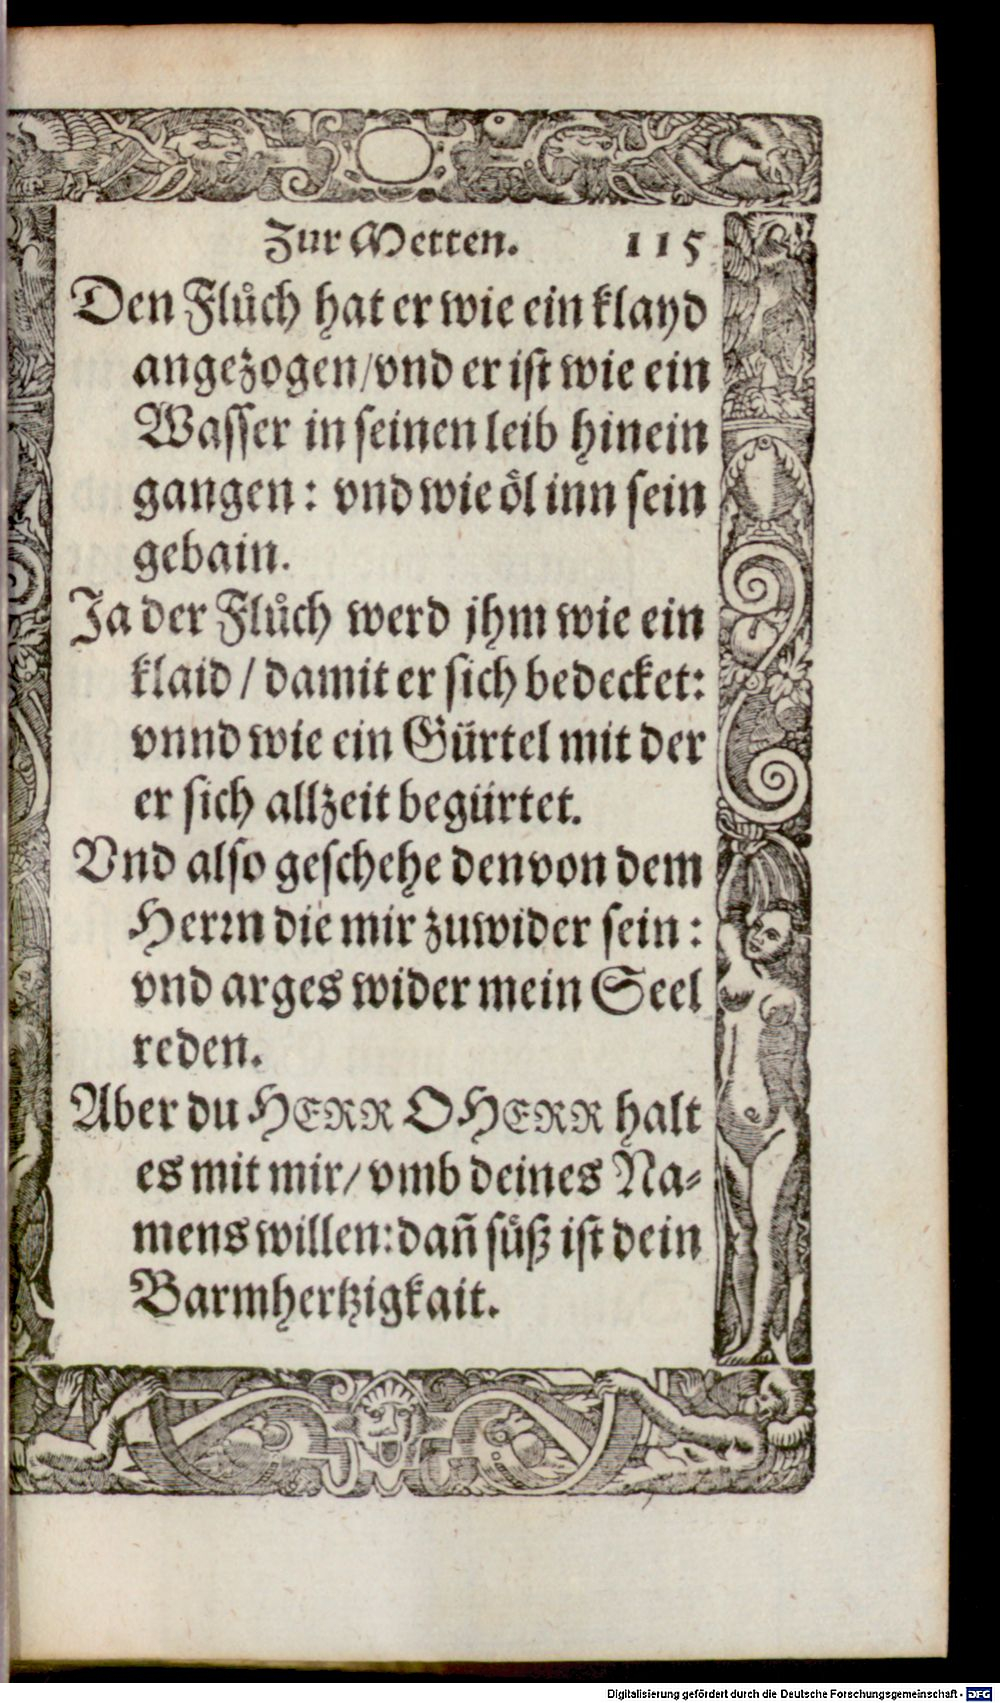 Zur Metten. 115
Den Flůch hat er wie ein klayd
angezogen/vnd er ist wie ein
Wasser in seinen leib hinein
gangen: vnd wie öl inn sein
gebain.
Ja der Flůch werd jhm wie ein
klaid / damit er sich bedecket:
vnnd wie ein Gürtel mit der
er sich allzeit begürtet.
Vnd also geschehe den von dem
Herrn die mir zuwider sein:
vnd arges wider mein Seel
reden.
Aber du HERR O HERR halt
es mit mir/ vmb deines Na-
mens willen: dañ süß ist dein
Barmhertzigkait.
Digitalisierung gefördert durch die Deutsche Forschungsgemeinschaft - DFG